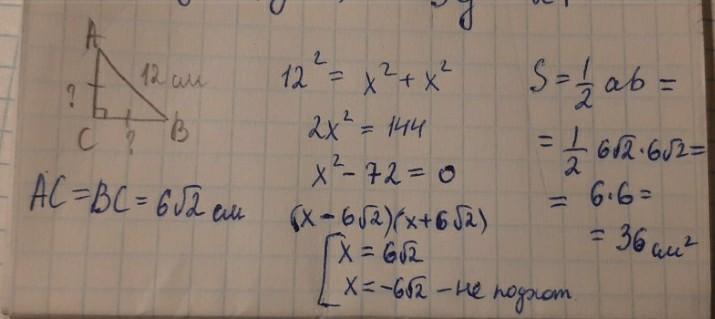 A
12 см
?
C
B
?
AC=BC=6√2 см
12² = x² + x²
2x² = 144
x² - 72 = 0
(x - 6√2)(x + 6√2)
[ x = 6√2
x = -6√2 - не подхот
S = 1/2 ab =
= 1/2 6√2 · 6√2 =
= 6·6 =
= 36 см²